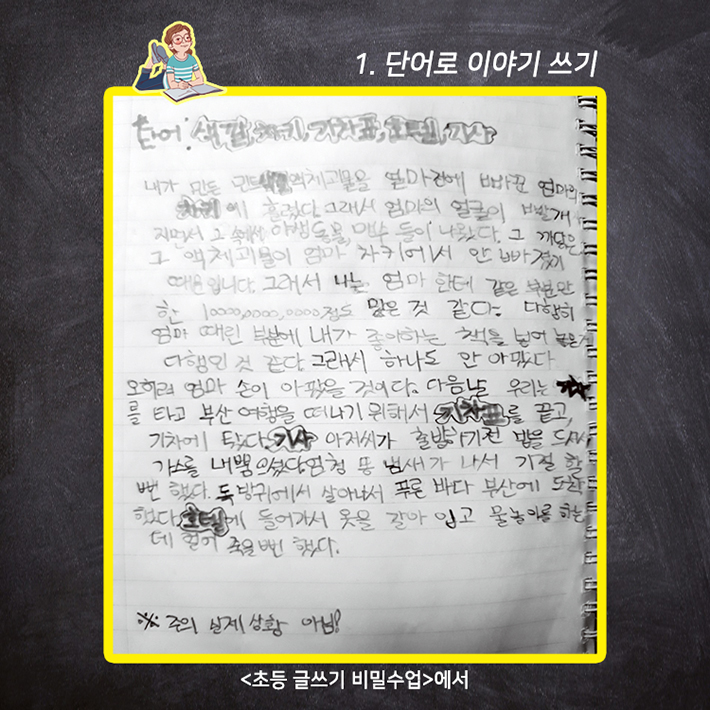 1. 단어로 이야기 쓰기
단어: 색깔, 차키, 기차표, 호텔, 기사
내가 만든 액체괴물을 엄마 엄마의
차키에 흘렸다. 그래서 엄마의 얼굴이 빨개
지면서 그 속에서 야생동물 들이 나왔다. 그
그 액체괴물이 엄마 차키에서 안 빠졌기
때문입니다. 그래서 나는 엄마 한테 같은 부분만
한 점도 맞은 것 같다. 다행히
엄마 때린 부분에 내가 좋아하는 책을 넣어
다행인 것 같다. 그래서 하나도 안 아팠다
오히려 엄마 손이 아팠을 것이다. 다음날 우리는 기차
를 타고 부산 여행을 떠나기 위해서 기차표를 끊고,
기차에 탔다. 기사 아저씨가 출발하기전 밥을 드셔서
가스를 내뿜으셨다. 엄청 똥 냄새가 나서 기절 할
뻔 했다. 독방귀에서 살아나서 푸른 바다 부산에 도착
했다. 호텔에 들어가서 옷을 갈아 입고 물놀이를 하는
데 추워 죽을뻔 했다.
※ 주의 실제 상황 아님!
<초등 글쓰기 비밀수업>에서